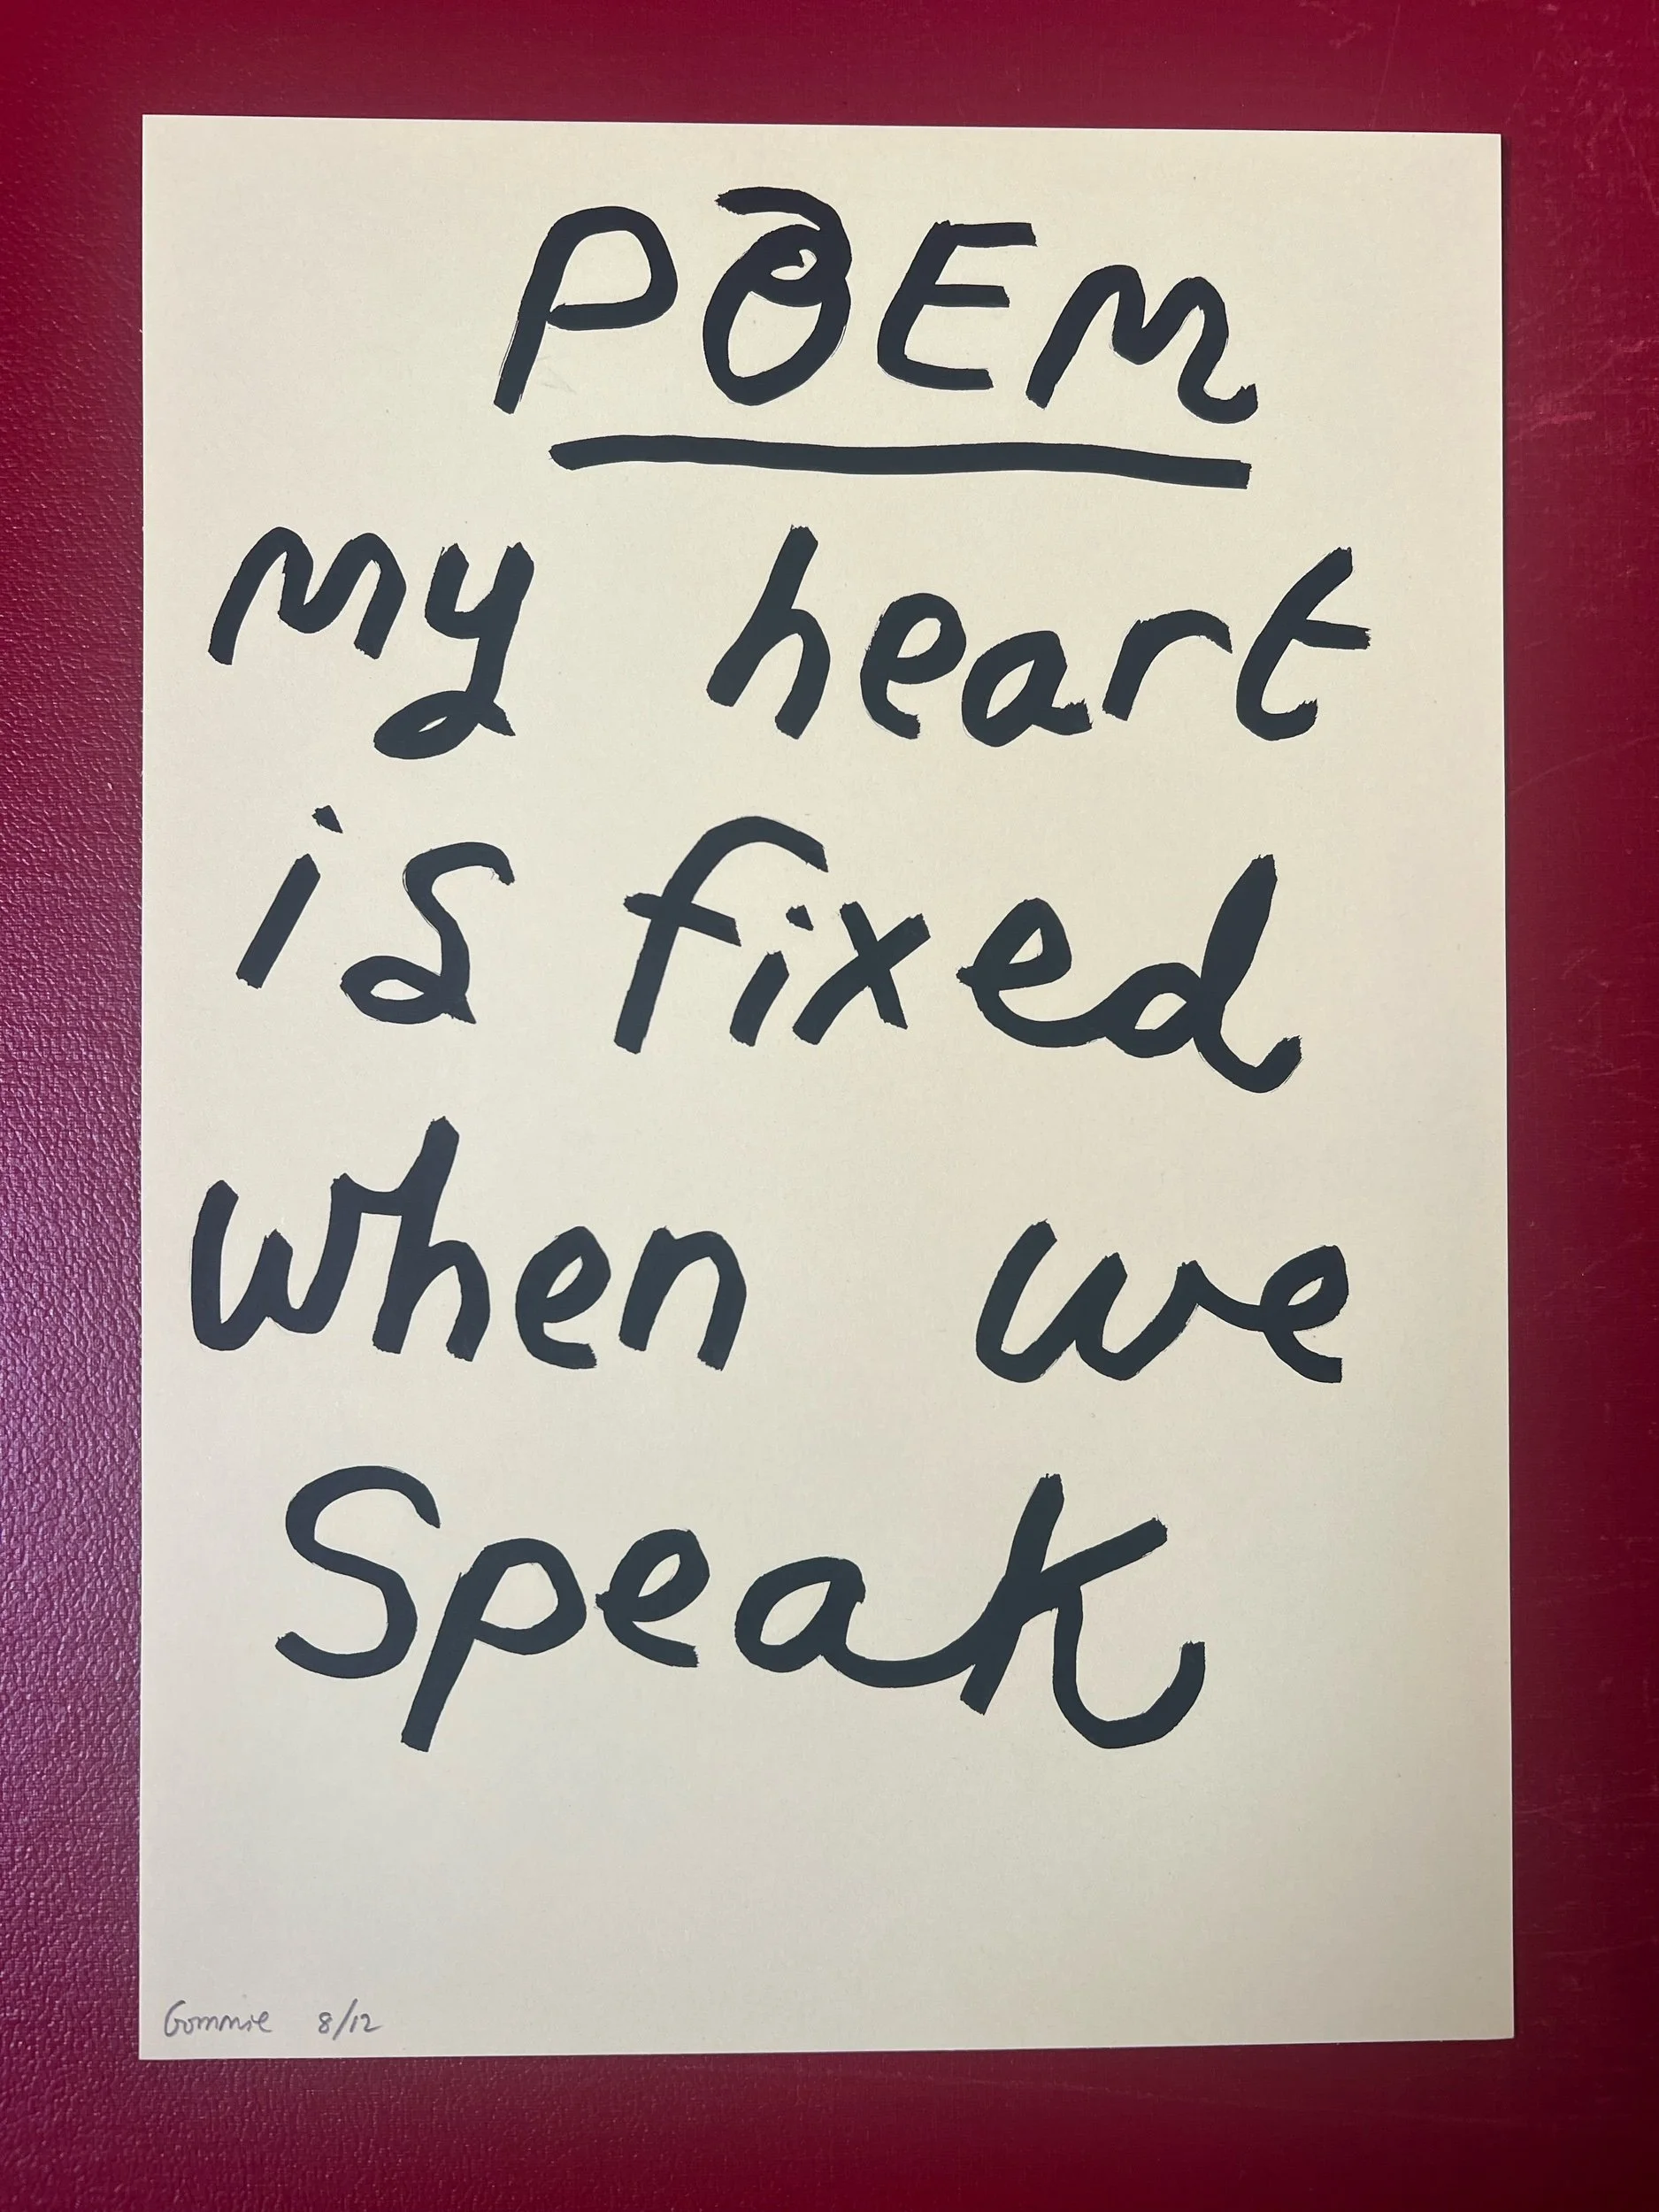 POEM
my heart
is fixed
when we
Speak
Gommie 8/12